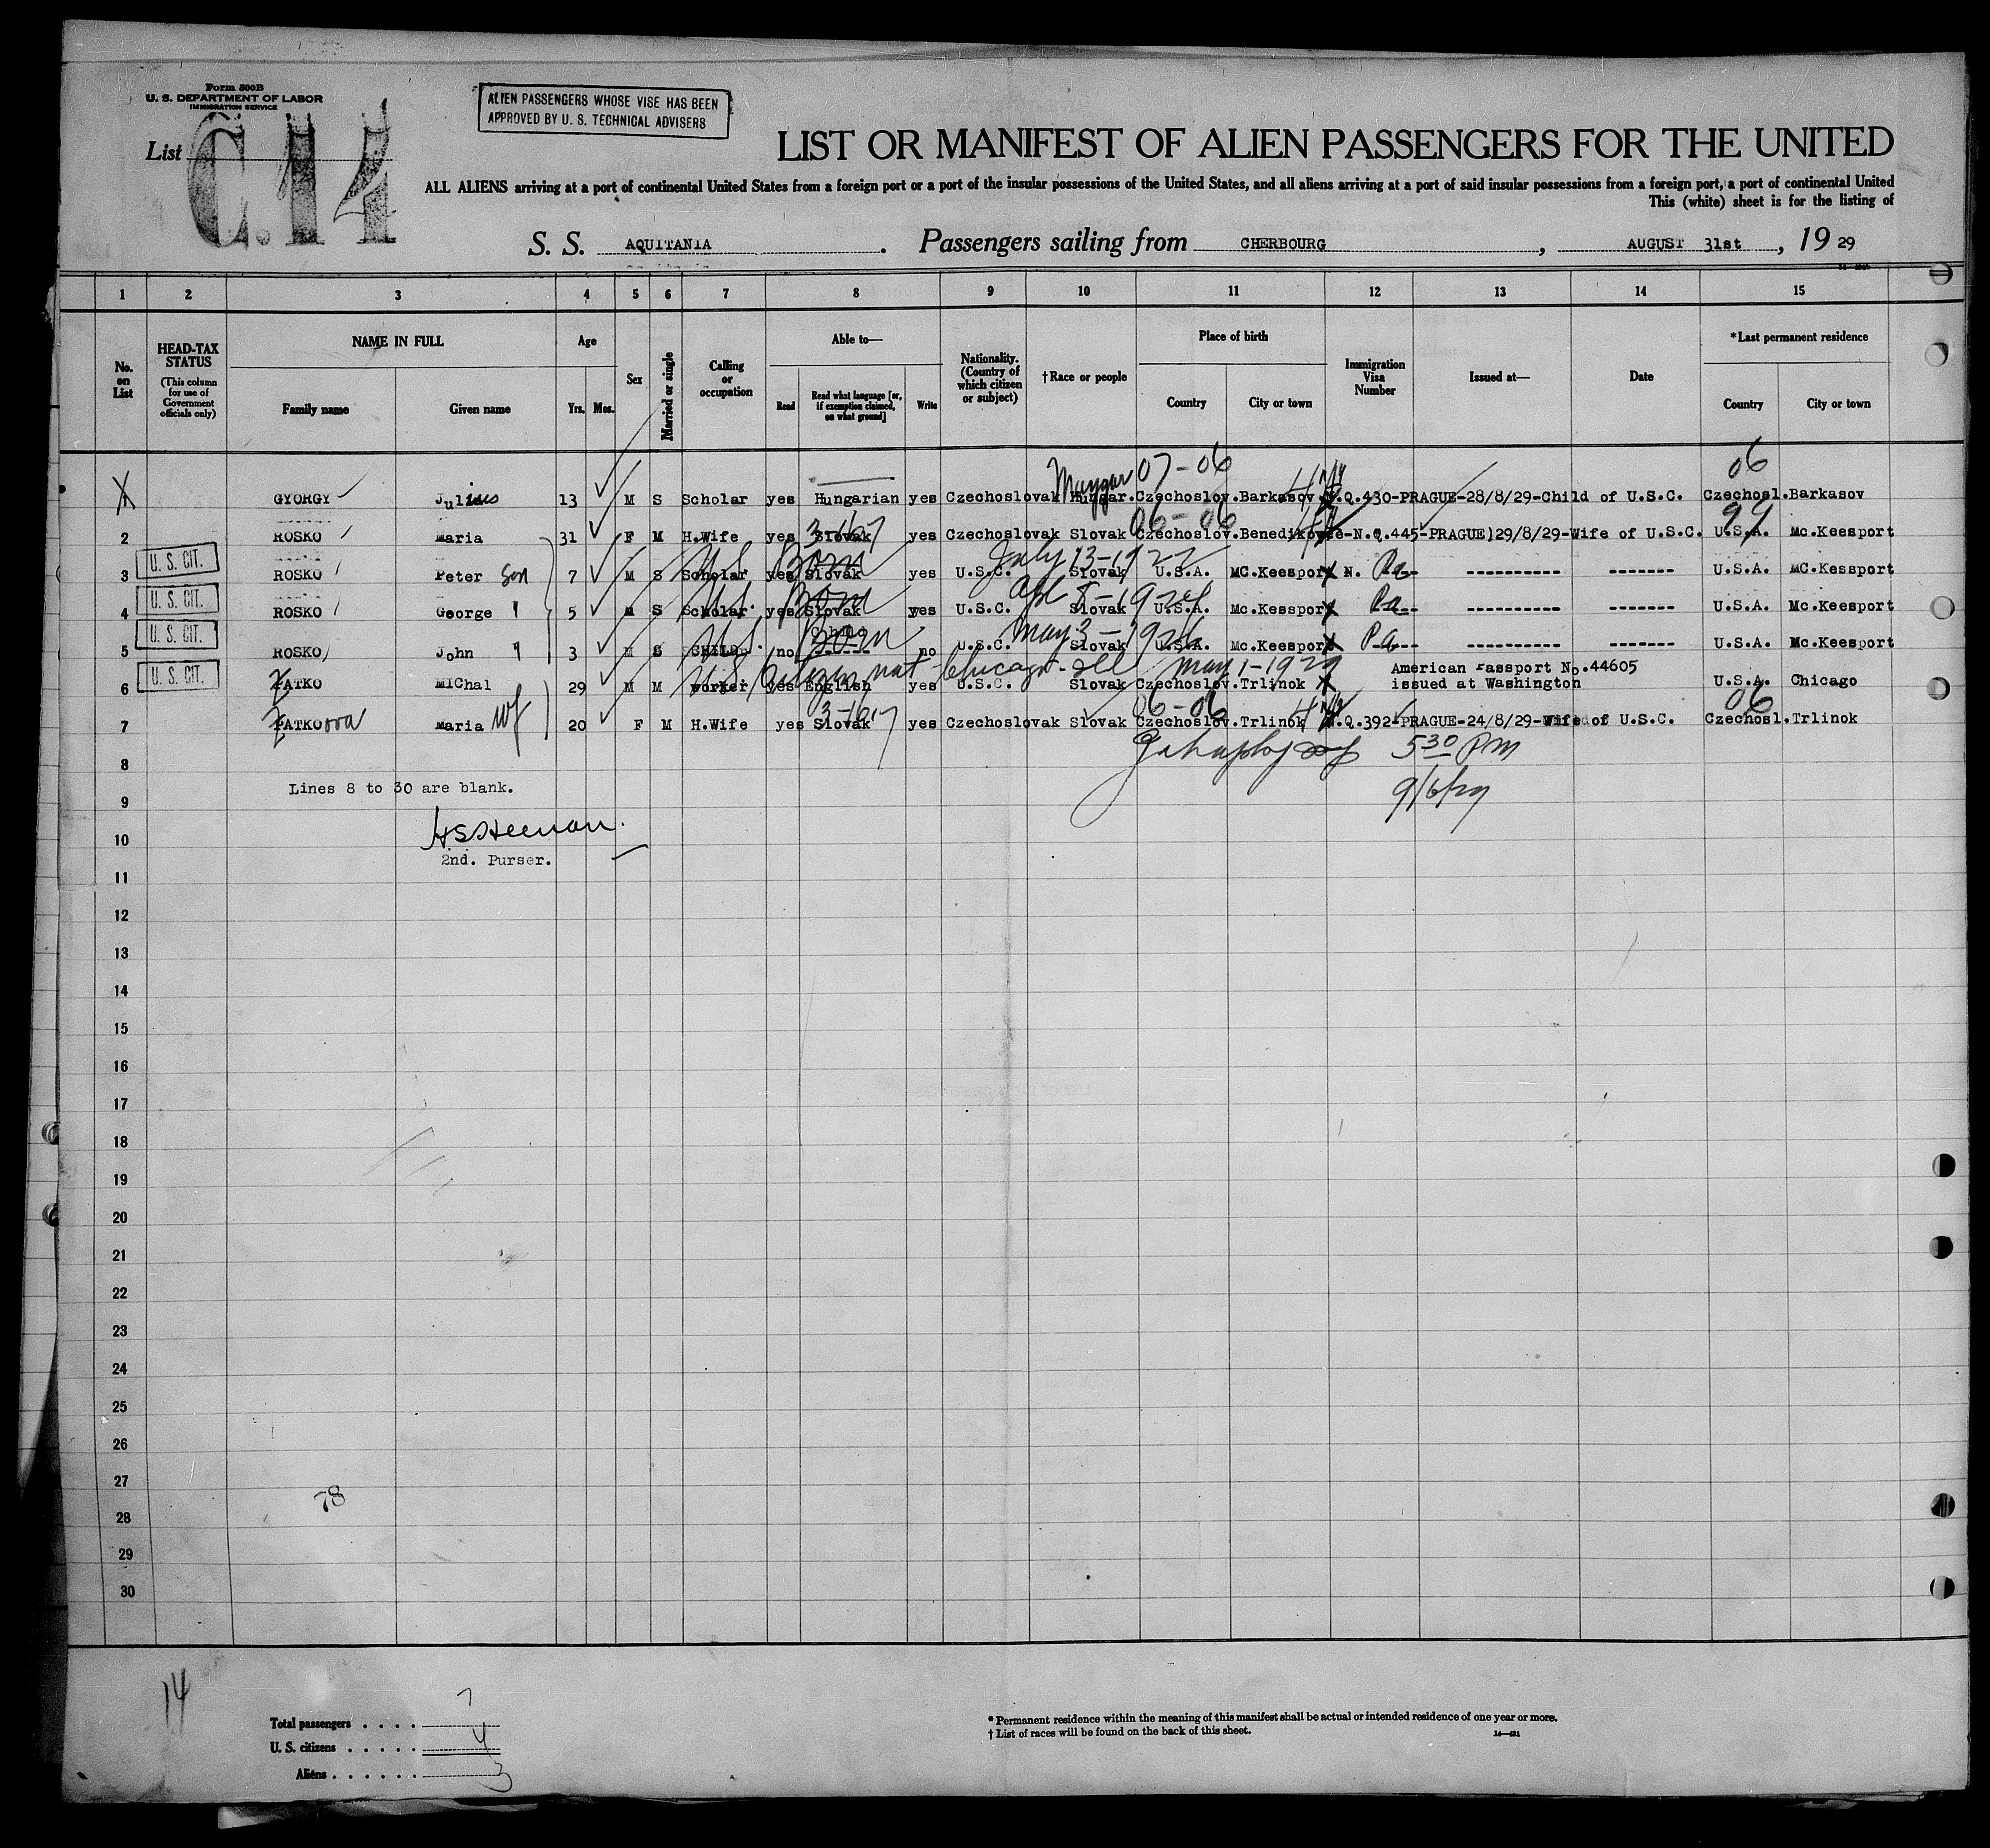 Form 500B
U. S. DEPARTMENT OF LABOR
IMMIGRATION SERVICE
ALIEN PASSENGERS WHOSE VISE HAS BEEN
APPROVED BY U. S. TECHNICAL ADVISERS
List C.14
LIST OR MANIFEST OF ALIEN PASSENGERS FOR THE UNITED
ALL ALIENS arriving at a port of continental United States from a foreign port or a port of the insular possessions of the United States, and all aliens arriving at a port of said insular possessions from a foreign port, a port of continental United
This (white) sheet is for the listing of
S. S. AQUITANIA . Passengers sailing from CHERBOURG , AUGUST 31st , 19 29
1 2 3 4 5 6 7 8 9 10 11 12 13 14 15
No. on List
HEAD-TAX STATUS
(This column for use of Government officials only)
NAME IN FULL
Family name
Given name
Age
Yrs. Mos.
Sex
Married or single
Calling or occupation
Able to—
Read
Read what language [or, if exemption claimed, on what ground]
Write
Nationality. (Country of which citizen or subject)
†Race or people
Place of birth
Country
City or town
Immigration Visa Number
Issued at—
Date
*Last permanent residence
Country
City or town
Magyar 07-06 06
1 GYORGY Julius 13 M S Scholar yes Hungarian yes Czechoslovak Hungar. Czechoslov. Barkasov N.Q.430-PRAGUE-28/8/29-Child of U.S.C. Czechosl. Barkasov
3-16-7 06-06 99
2 ROSKO Maria 31 F M H.Wife yes Slovak yes Czechoslovak Slovak Czechoslov. Benedikovce-N.Q.445-PRAGUE)29/8/29-Wife of U.S.C. U.S.A. Mc.Keesport
U. S. CIT. U.S. Born July 13-1922
3 ROSKO Peter son 7 M S Scholar yes Slovak yes U.S.C. Slovak U.S.A. MC.Keesport N. Pa ---------- ------- U.S.A. MC.Kessport
U. S. CIT. U.S. Born Apl 8-1924
4 ROSKO George " 5 M S Scholar yes Slovak yes U.S.C. Slovak U.S.A. Mc.Kessport Pa ---------- ------- U.S.A. Mc.Keesport
U. S. CIT. U.S. Born May 3-1926
5 ROSKO John " 3 M S CHILD no ------ no U.S.C. Slovak U.S.A. Mc.Keesport Pa ---------- ------- U.S.A. Mc.Keesport
U. S. CIT. U.S. Citizen nat Chicago - Ill May 1-1929 American Passport No.44605
6 ZATKO MIChal 29 M M worker yes English yes U.S.C. Slovak Czechoslov. Trlinok issued at Washington U.S.A. Chicago
3-16-7 06-06 06
7 ZATKOova Maria wf 20 F M H.Wife yes Slovak yes Czechoslovak Slovak Czechoslov. Trlinok N.Q.392-PRAGUE-24/8/29-Wife of U.S.C. Czechosl. Trlinok
8 5 30 PM
Lines 8 to 30 are blank.
9 9/6/29
10 H.S.Heenan.
2nd. Purser.
11
12
13
14
15
16
17
18
19
20
21
22
23
24
25
26
27
78
28
29
30
14
Total passengers . . . . 7
U. S. citizens . . . . . 4
Aliens . . . . . . 3
* Permanent residence within the meaning of this manifest shall be actual or intended residence of one year or more.
† List of races will be found on the back of this sheet.